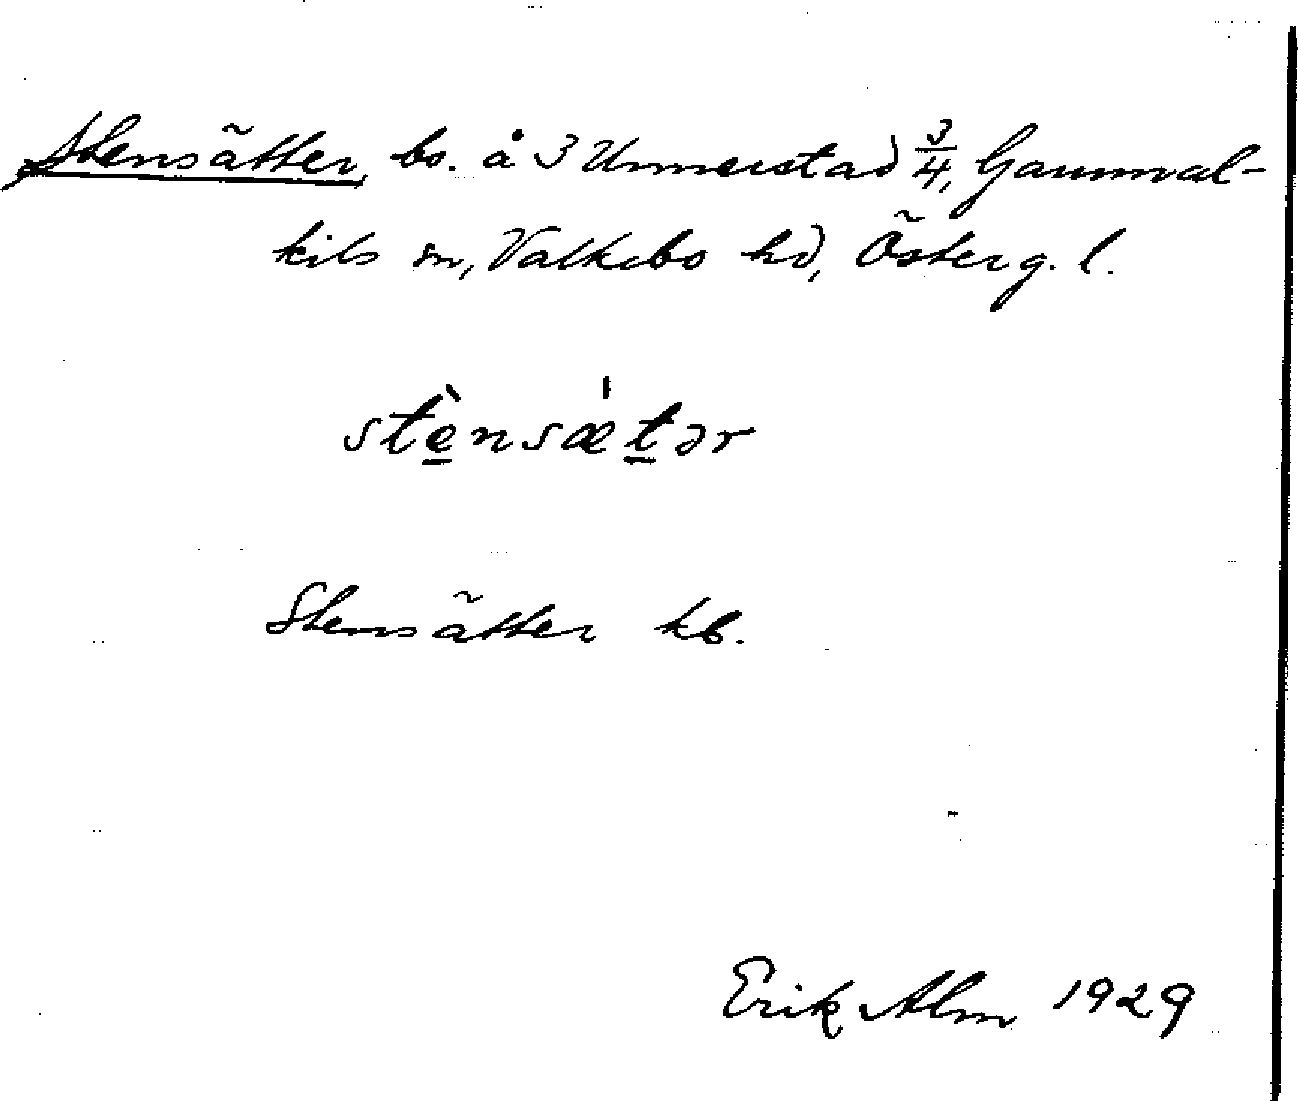 Stensätter, bo. å 3 Unnerstad 3/4, Gammal-
kils sn, Valkebo hd, Österg. l.
stènsæ̍tər
Stensätter kb.
Erik Alm 1929